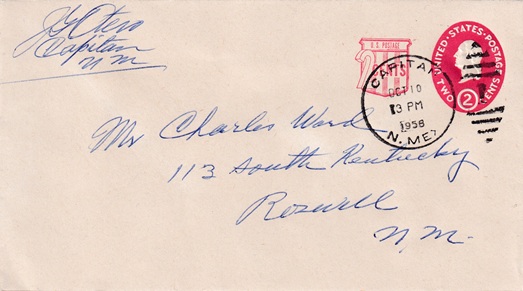 J G Otero
Capitan
N M
U.S. POSTAGE
2 CENTS
UNITED·STATES·POSTAGE
TWO 2 CENTS
CAPITAN
OCT 10
3 PM
1958
N. MEX
Mr Charles Ward
113 South Kentucky
Roswell
N. M.